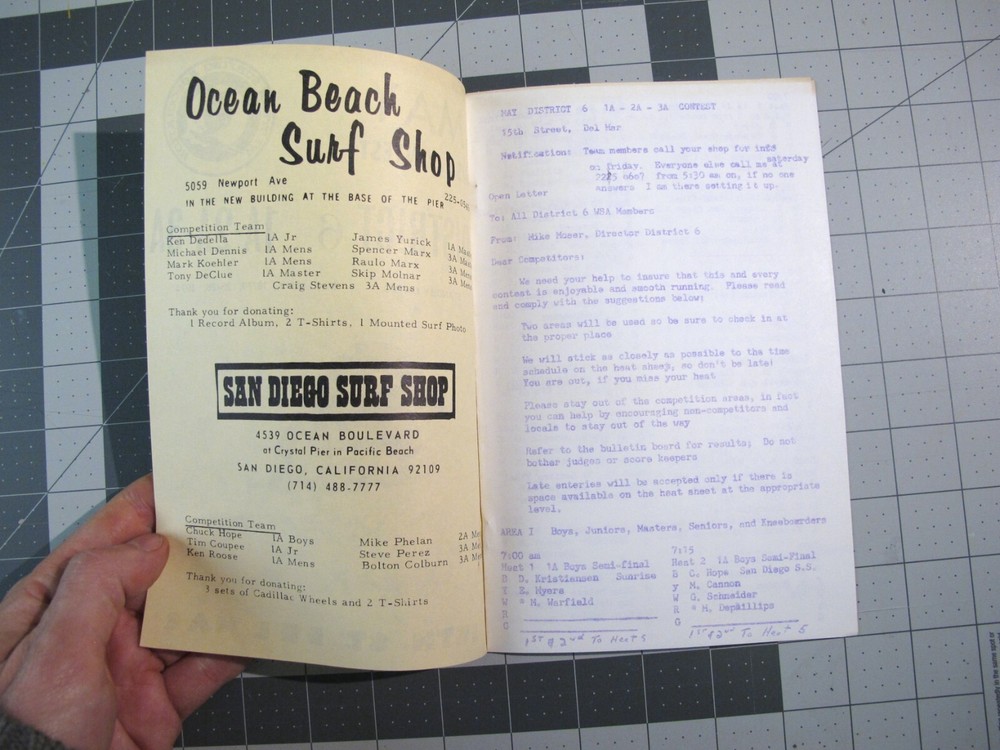 Ocean Beach
Surf Shop
5059 Newport Ave
IN THE NEW BUILDING AT THE BASE OF THE PIER
Competition Team
Ken Dedella 1A Jr James Yurick 1A
Michael Dennis 1A Mens Spencer Marx 3A
Mark Koehler 1A Mens Raulo Marx 3A
Tony DeClue 1A Master Skip Molnar 3A
Craig Stevens 3A Mens
Thank you for donating:
1 Record Album, 2 T-Shirts, 1 Mounted Surf Photo
SAN DIEGO SURF SHOP
4539 OCEAN BOULEVARD
at Crystal Pier in Pacific Beach
SAN DIEGO, CALIFORNIA 92109
(714) 488-7777
Competition Team
Chuck Hope 1A Boys Mike Phelan 2A
Tim Coupee 1A Jr Steve Perez 3A
Ken Roose 1A Mens Bolton Colburn 3A
Thank you for donating:
3 sets of Cadillac Wheels and 2 T-Shirts
MAY DISTRICT 6 1A - 2A - 3A CONTEST
15th Street, Del Mar
Notification: Team members call your shop for info
on friday. Everyone else call me at saterday
from 5:30 am on, if no one
answers I am there setting it up.
Open Letter
To: All District 6 WSA Members
From: Mike Moser, Director District 6
Dear Competitors:
We need your help to insure that this and every
contest is enjoyable and smooth running. Please read
and comply with the suggestions below:
Two areas will be used so be sure to check in at
the proper place
We will stick as closely as possible to the time
schedule on the heat sheet, so don't be late!
You are out, if you miss your heat
Please stay out of the competition areas, in fact
you can help by encouraging non-competitors and
locals to stay out of the way
Refer to the bulletin board for results; Do not
bother judges or score keepers
Late enteries will be accepted only if there is
space available on the heat sheet at the appropriate
level.
AREA I Boys, Juniors, Masters, Seniors, and Kneeboarders
7:00 am 7:15
Heat 1 1A Boys Semi-final Heat 2 1A Boys Semi-Final
B D. Kristiansen Sunrise B C. Hope San Diego S.S.
Y E. Myers Y M. Cannon
W * M. Warfield W G. Schneider
R R * M. Dephillips
G G
1ST & 2nd To Heat 5 1ST & 2nd To Heat 5